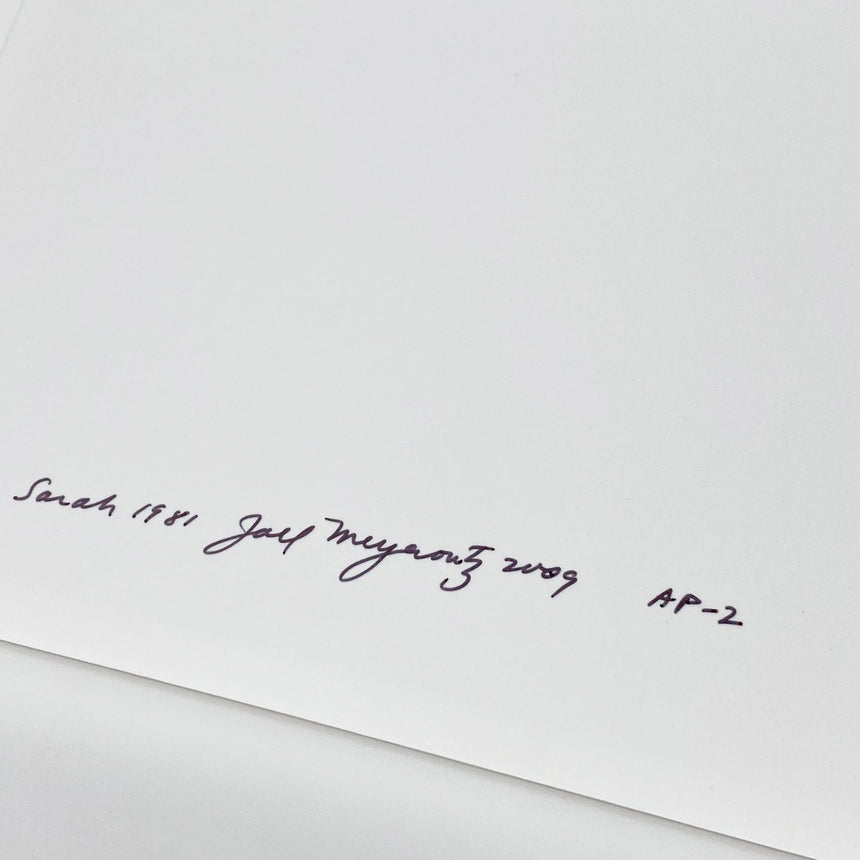 Sarah 1981 Joel Meyerowitz 2009 AP-2